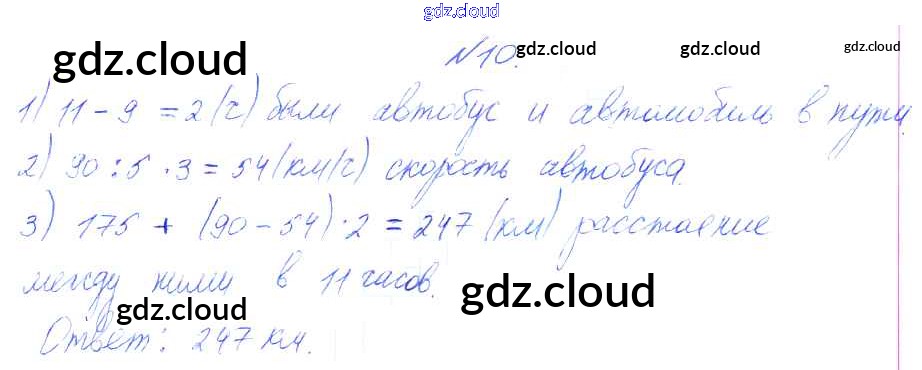 gdz.cloud
gdz.cloud №10. gdz.cloud gdz.cloud
1) 11 - 9 = 2 (ч) были автобус и автомобиль в пути.
2) 90 : 5 · 3 = 54 (км/ч) скорость автобуса.
3) 175 + (90 - 54) · 2 = 247 (км) расстояние
между ними в 11 часов.
gdz.cloud gdz.cloud
Ответ: 247 км.